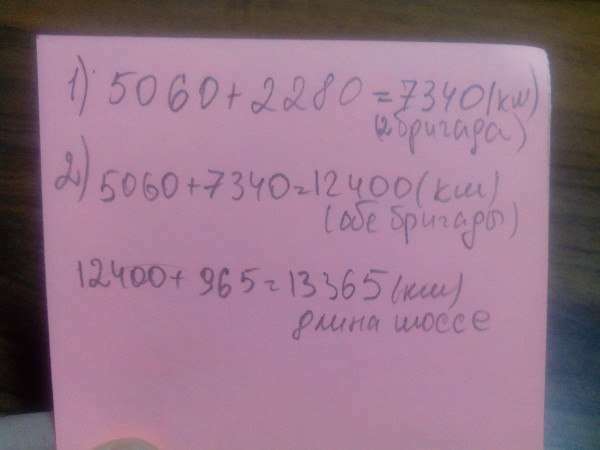 1) 5060+2280=7340(км)
(2бригада)
2) 5060+7340=12400(км)
(обе бригады)
12400+965=13365(км)
длина шоссе